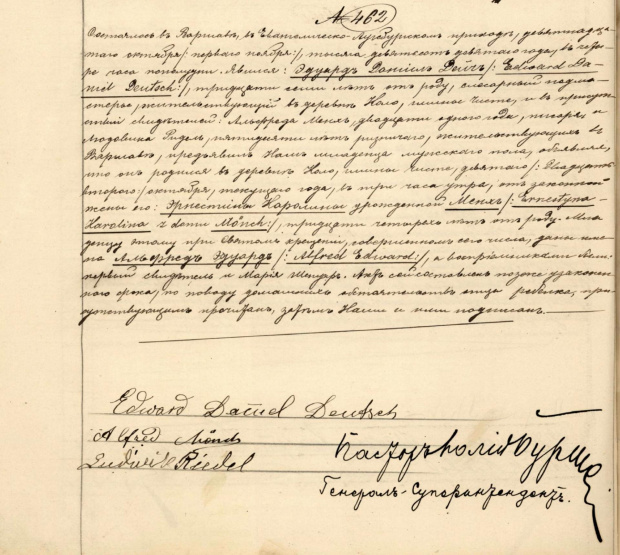 № 462
Состоялось въ Варшавѣ, въ Евангелическо-Аугсбургскомъ приходѣ, девятнадца-
таго октября /: перваго ноября :/, тысяча девятьсотъ девятаго года, въ четы-
ре часа пополудни. Явился: Эдуардъ Данiилъ Дейчъ /: Edward Da-
niel Deutsch :/, тридцати семи лѣтъ отъ роду, слесарный подма-
стерье, жительствующiй въ деревнѣ Коло, гмины Чисте, и въ присут-
ствiи свидѣтелей: Альфреда Менхъ, двадцати одного года, писаря, и
Людовика Ридель, пятидесяти лѣтъ ризничаго, жительствующихъ въ
Варшавѣ, предъявилъ Намъ младенца мужескаго пола, объявляя,
что онъ родился въ деревнѣ Коло, гмины Чисте, девятаго /: двадцать
втораго :/ октября, текущаго года, въ три часа утра, отъ законной
жены его: Эрнестины Каролины урожденной Менхъ /: Ernestyna-
Karolina z domu Mönch :/, тридцати четырехъ лѣтъ отъ роду. Мла-
денцу этому при Святомъ крещенiи, совершенномъ сего числа, дано имя
Альфредъ Эдуардъ /: Alfred Edward :/, а воспрiемниками были:
первый свидѣтель и Марiя. Актъ сей составленъ позже узаконен-
наго срока, по поводу домашнихъ обстоятельствъ отца ребенка, при-
сутствующимъ прочитанъ, затѣмъ Нами и ими подписанъ.
Edward Daniel Deutsch
Alfred Mönch
Ludwik Riedel
Пасторъ Юлiй Бурше
Генералъ-Суперинтендентъ.